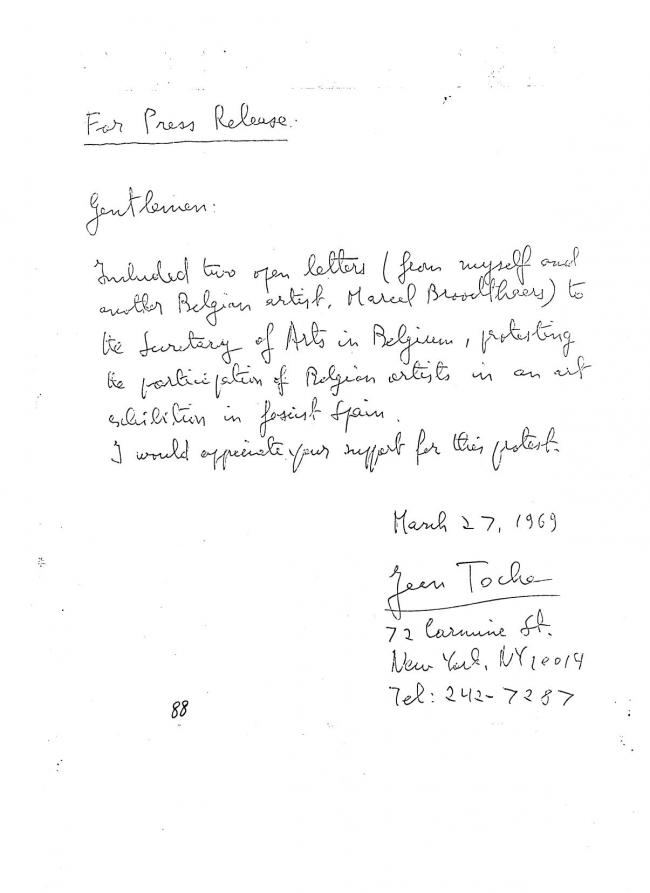 For Press Release.
Gentlemen:
Included two open letters (from myself and
another Belgian artist, Marcel Broodthaers) to
the Secretary of Arts in Belgium, protesting
the participation of Belgian artists in an art
exhibition in fascist Spain.
I would appreciate your support for this protest.
March 27, 1969
Jean Toche
72 Carmine St.
New York, NY 10014
Tel: 242-7287
88